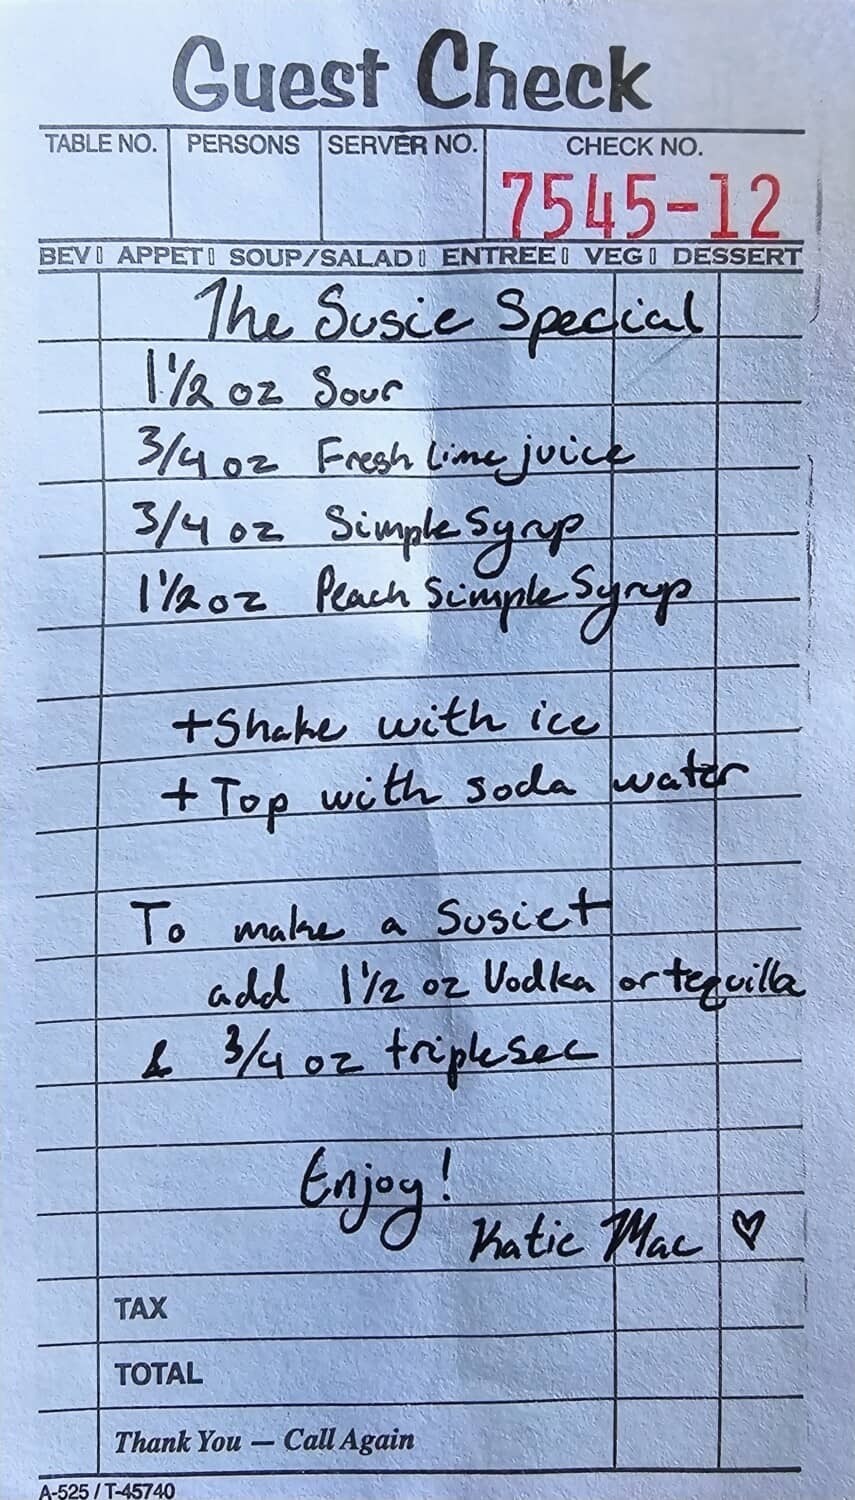 Guest Check
TABLE NO. PERSONS SERVER NO. CHECK NO.
7545-12
BEV▯ APPET▯ SOUP/SALAD▯ ENTREE▯ VEG▯ DESSERT
The Susie Special
1 1/2 oz Sour
3/4 oz Fresh lime juice
3/4 oz Simple Syrup
1 1/2 oz Peach Simple Syrup
+Shake with ice
+ Top with soda water
To make a Susie+
add 1 1/2 oz Vodka or tequilla
& 3/4 oz triple sec
Enjoy!
Katie Mac ♡
TAX
TOTAL
Thank You — Call Again
A-525 / T-45740